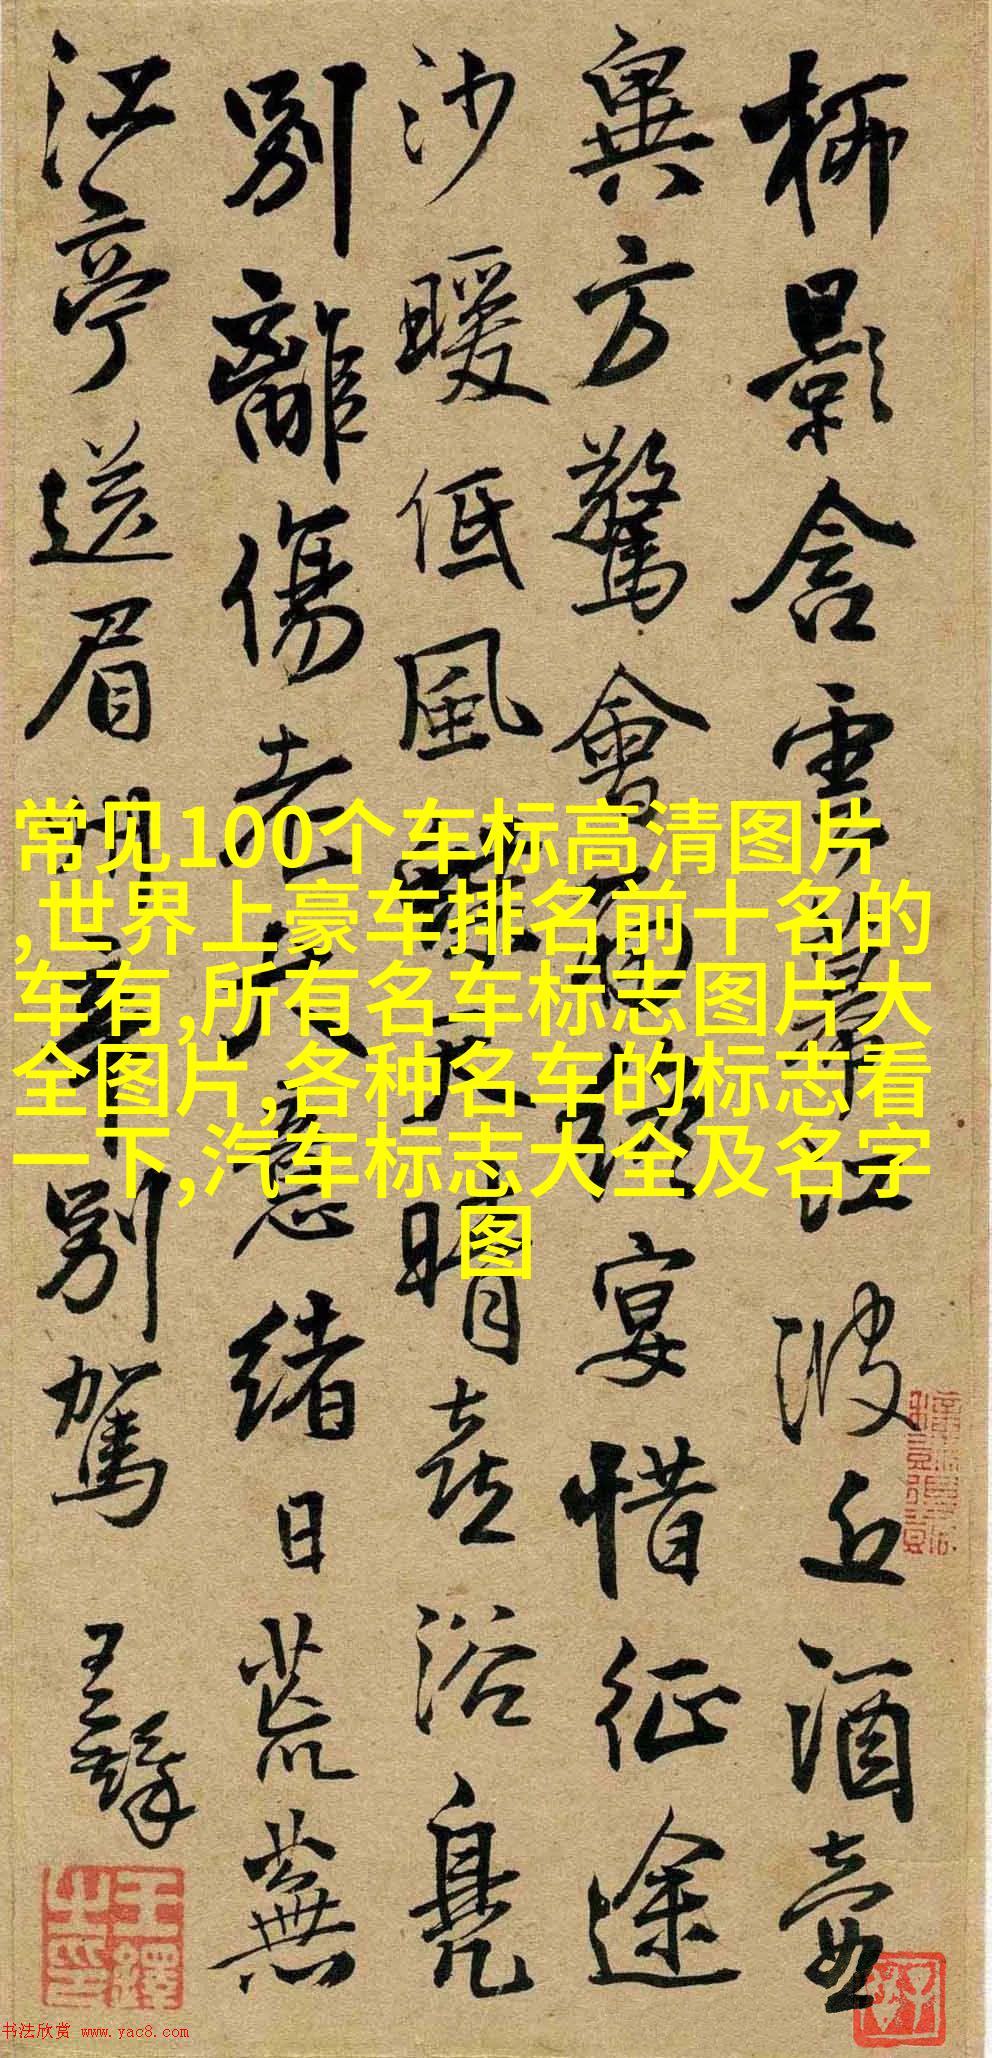 柳影含雲幕江波近酒壺
異方驚會面終宴惜征途
沙暖低風蝶天晴喜浴鳧
別離傷老大意緒日荒蕪
江亭送眉州辛別駕 王鐸
王鐸之印
常见100个车标高清图片
,世界上豪车排名前十名的
车有,所有名车标志图片大
全图片,各种名车的标志看
一下,汽车标志大全及名字
图
书法欣赏 www.yac8.com